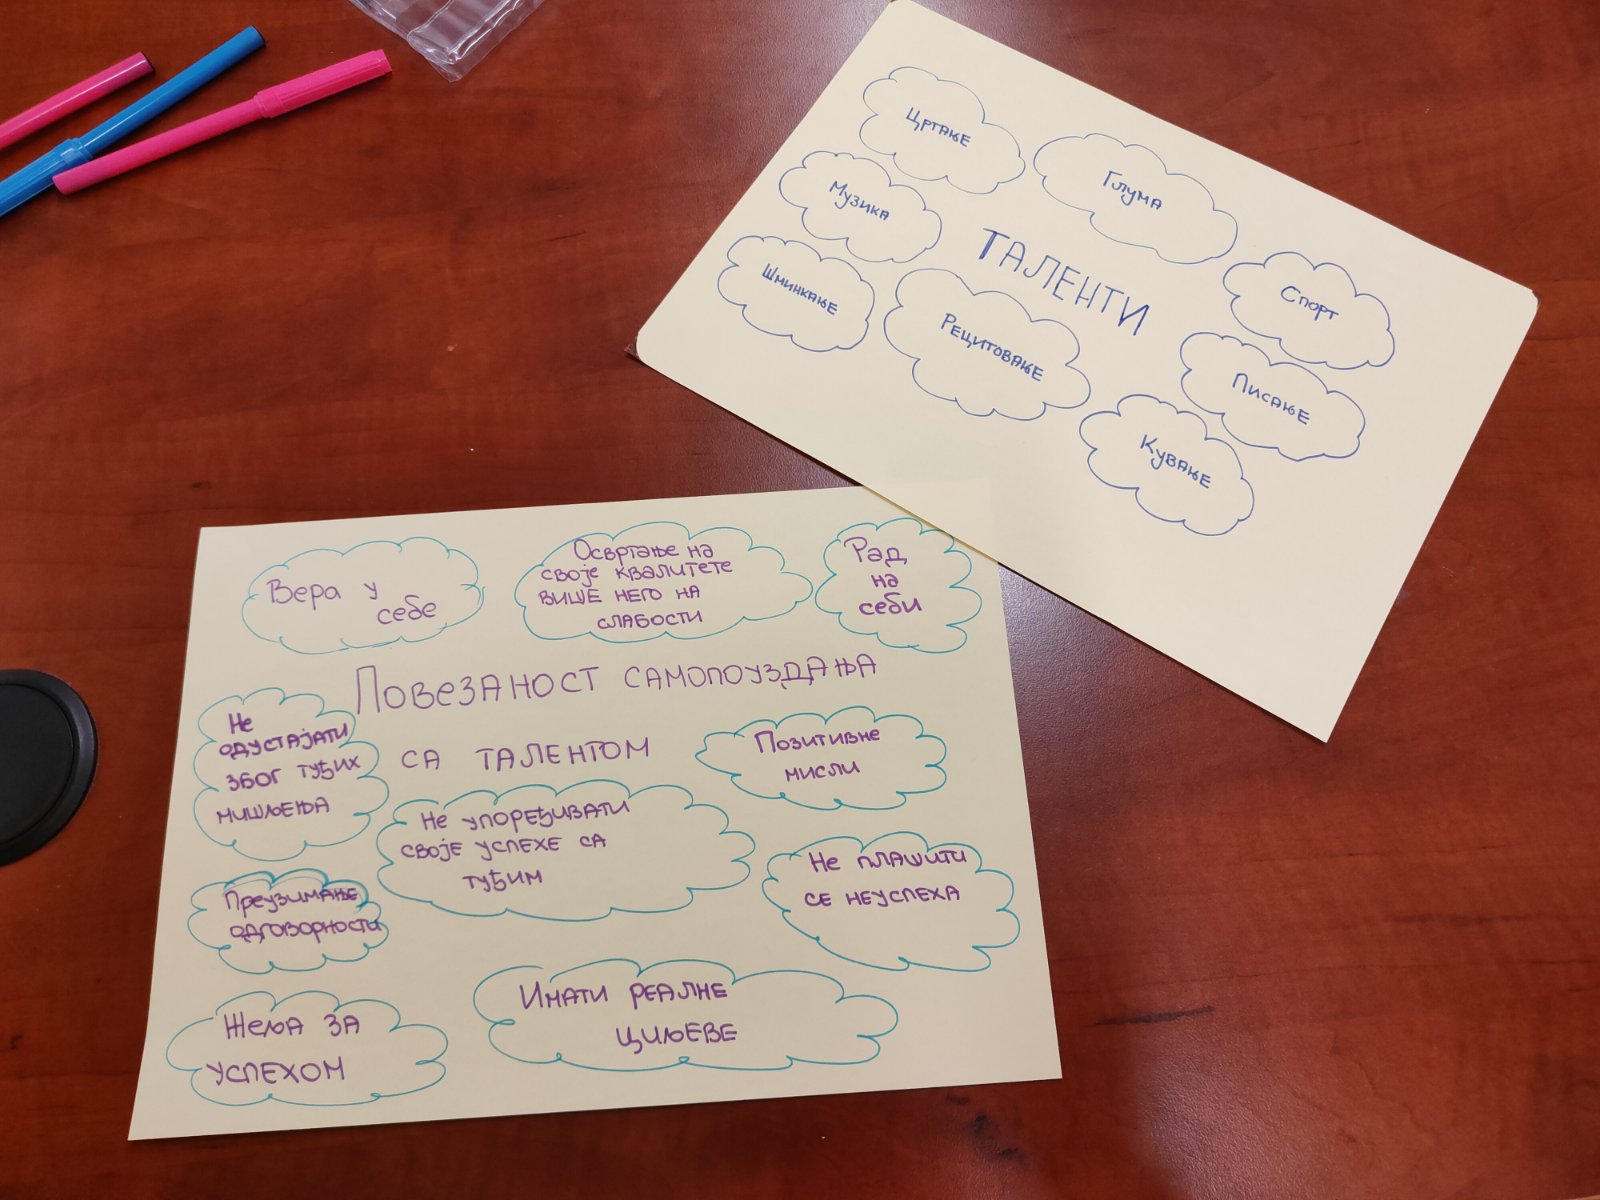 Цртање
Глума
Музика
ТАЛЕНТИ
Шминкање
Спорт
Рецитовање
Писање
Кување
Вера у
себе
Освртање на
своје квалитете
више него на
слабости
Рад
на
себи
Повезаност самопоуздања
са талентом
Не
одустајати
због туђих
мишљења
Позитивне
мисли
Не упоређивати
своје успехе са
туђим
Не плашити
се неуспеха
Преузимање
одговорности
Жеља за
успехом
Имати реалне
циљеве